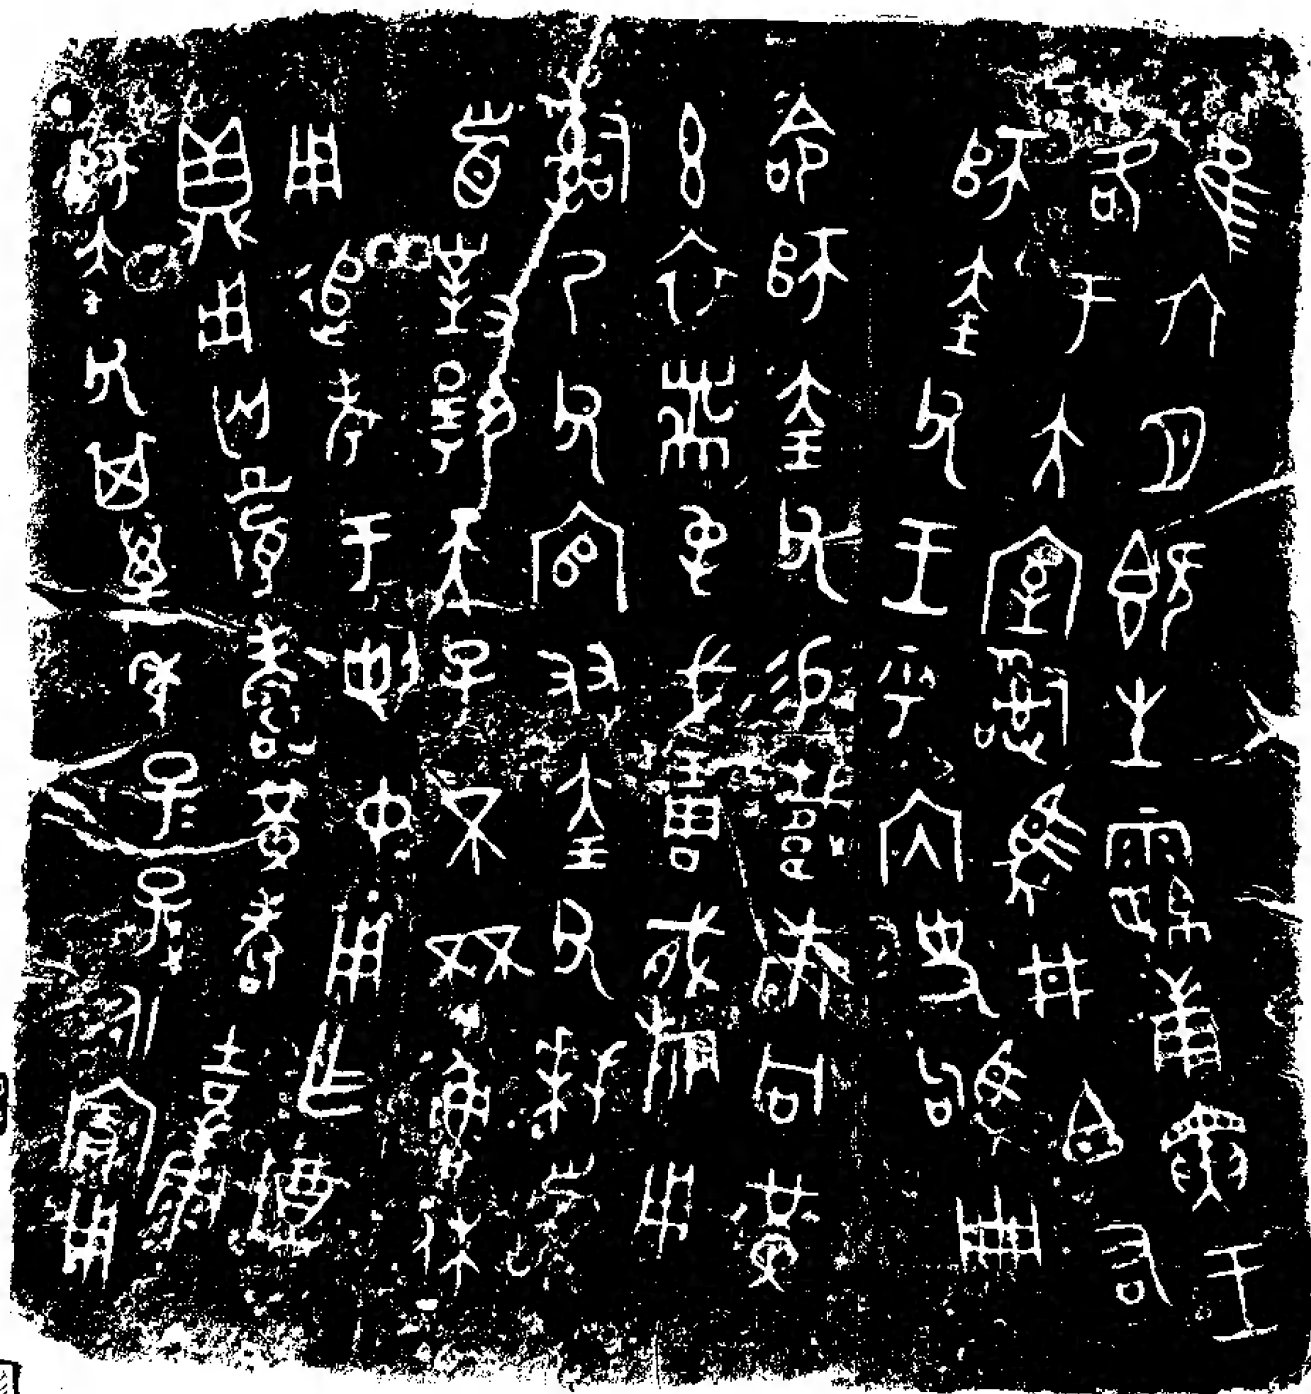 隹六月既生霸庚寅王
各于大室𤔲馬井白右
師奎父王乎內史駒冊
命師奎父易載巿冋黃
玄衣黹屯戈琱胾旂用
𤔲乃父官友奎父拜𩒨
首對揚天子不杯魯休
用追考于剌中用乍尊
鼎用匄眉壽黃耇吉康
師奎父其萬年子=孫=永寶用